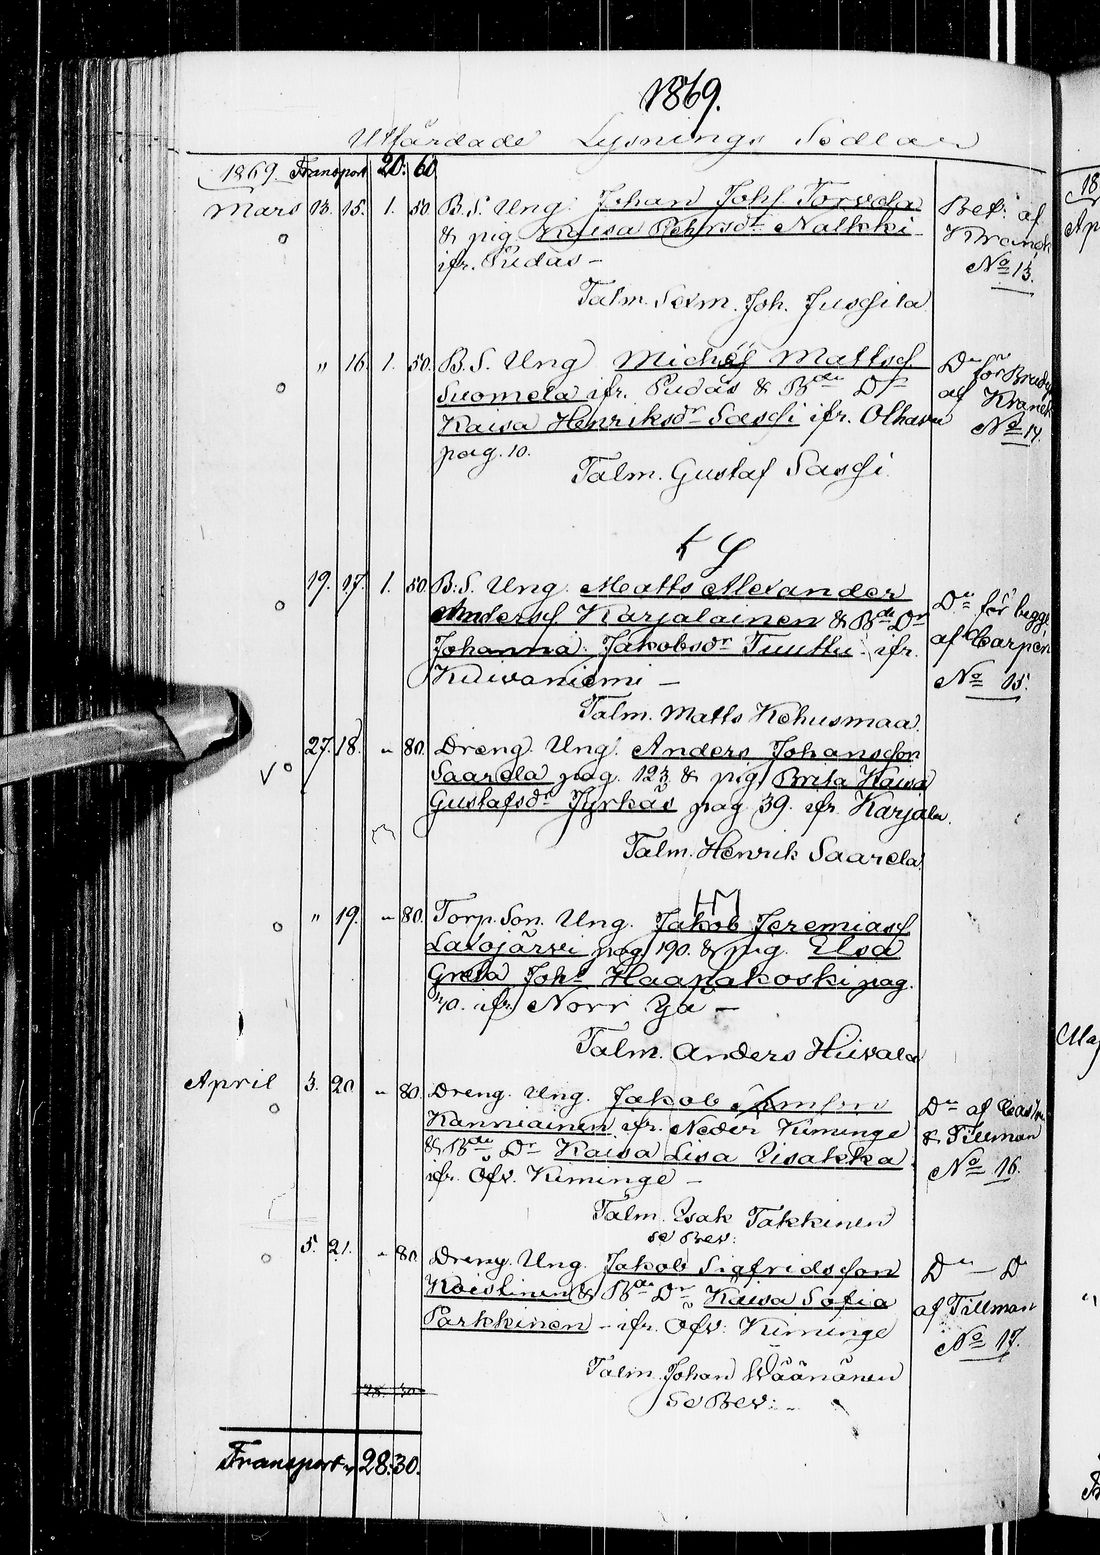 1869.
Utfärdade Lysnings Sedlar
1869. Transport 20. 60.
Mars 13. 15. 1. 50. B.S. Ung. Johan Johs Torvela
& pig. Kaisa Pehrsdr Nalkki
ifr. Pudas –
Bet: af
Kranck
No 13.
Talm. Sexm. Joh. Jussila
" 16. 1. 50. B.S. Ung. Michel Mattss.
Suomela ifr. Pudas & Bde Dr
Kaisa Henriksdr Sassi ifr. Olhava
pag. 10.
Do för Brud
af Kranck
No 14.
Talm. Gustaf Sassi.
19. 17. 1. 50. B.S. Ung. Matts Alexander
Anderss. Karjalainen & Bde Dr
Johanna Jakobsdr Tuuttu ifr.
Kuivaniemi –
Do för begge
af Carpen
No 15.
Talm. Matts Kehusmaa.
27. 18. " 80. Dreng. Ung. Anders Johansson
Saarela pag. 123 & pig. Brita Kaisa
Gustafsdr Jyrkäs pag. 39. ifr. Karjala.
Talm. Henrik Saarela.
HM
" 19. " 80. Torp. Son. Ung. Jakob Jeremiass.
Lavojärvi pag. 190. & pig. Elsa
Greta Johs Haapakoski pag.
ifr. Norr Ijå –
Talm. Anders Hiivala
April 3. 20. " 80. Dreng. Ung. Jakob
Kanniainen ifr. Neder Kiminge
& Bde Dr Kaisa Lisa Pisakka
ifr. Öfv. Kiminge –
Do af
& Tillman
No 16.
Talm. Isak Takkinen
se Bev:
5. 21. " 80. Dreng. Ung. Jakob Sigfridsson
Koistinen & Bde Dr Kaisa Sofia
Parkkinen – ifr. Öfv: Kiminge
Do – Do
af Tillman
No 17.
Talm. Johan Wäänänen
se Bev: –
28. 30.
Transport 28. 30.